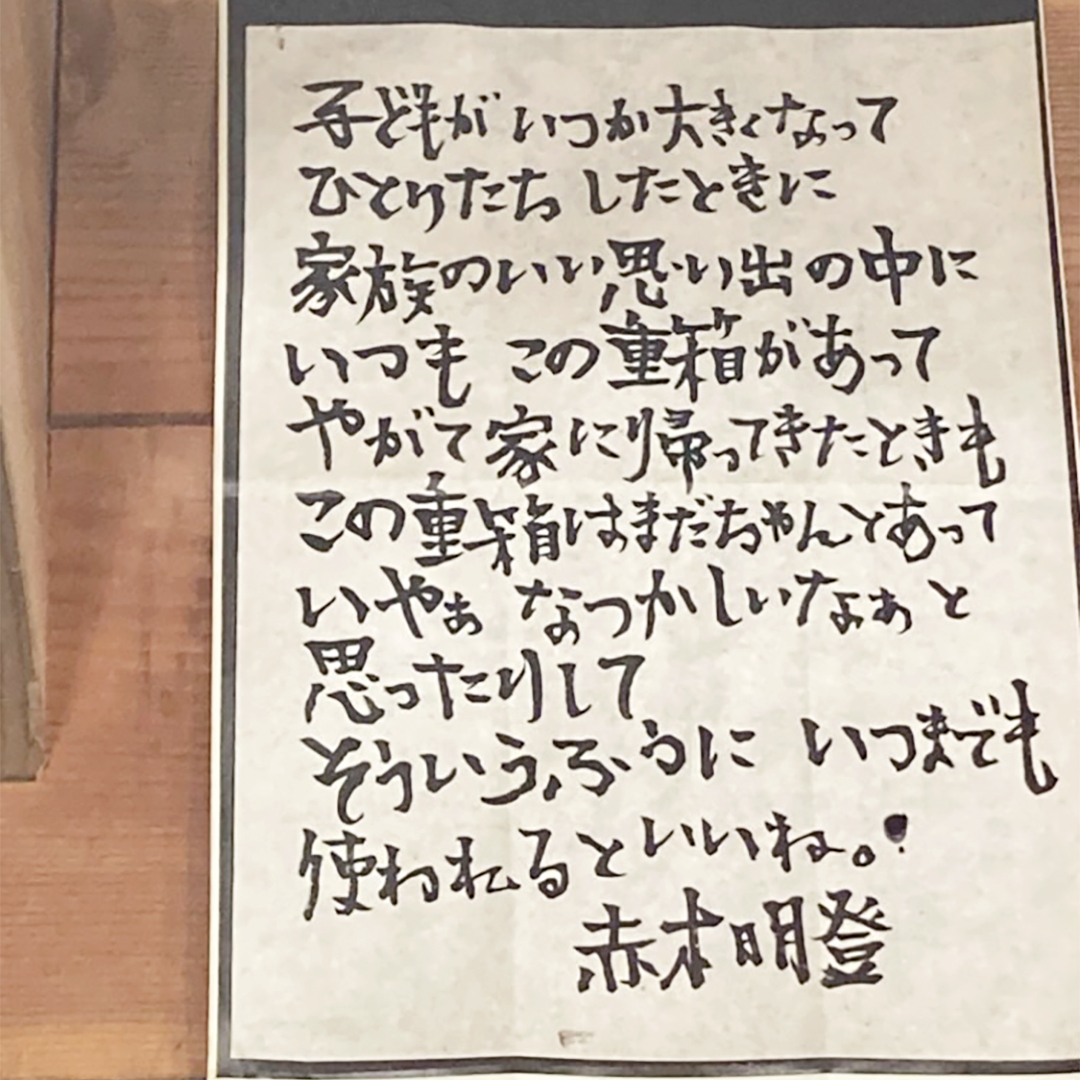 子どもが いつか大きくなって
ひとりたち したときに
家族のいい思い出の中に
いつも この重箱があって
やがて家に帰ってきたときも
この重箱はまだちゃんとあって
いやぁ なつかしいなぁ と
思ったりして
そういうふうに いつまでも
使われるといいね。
赤木明登